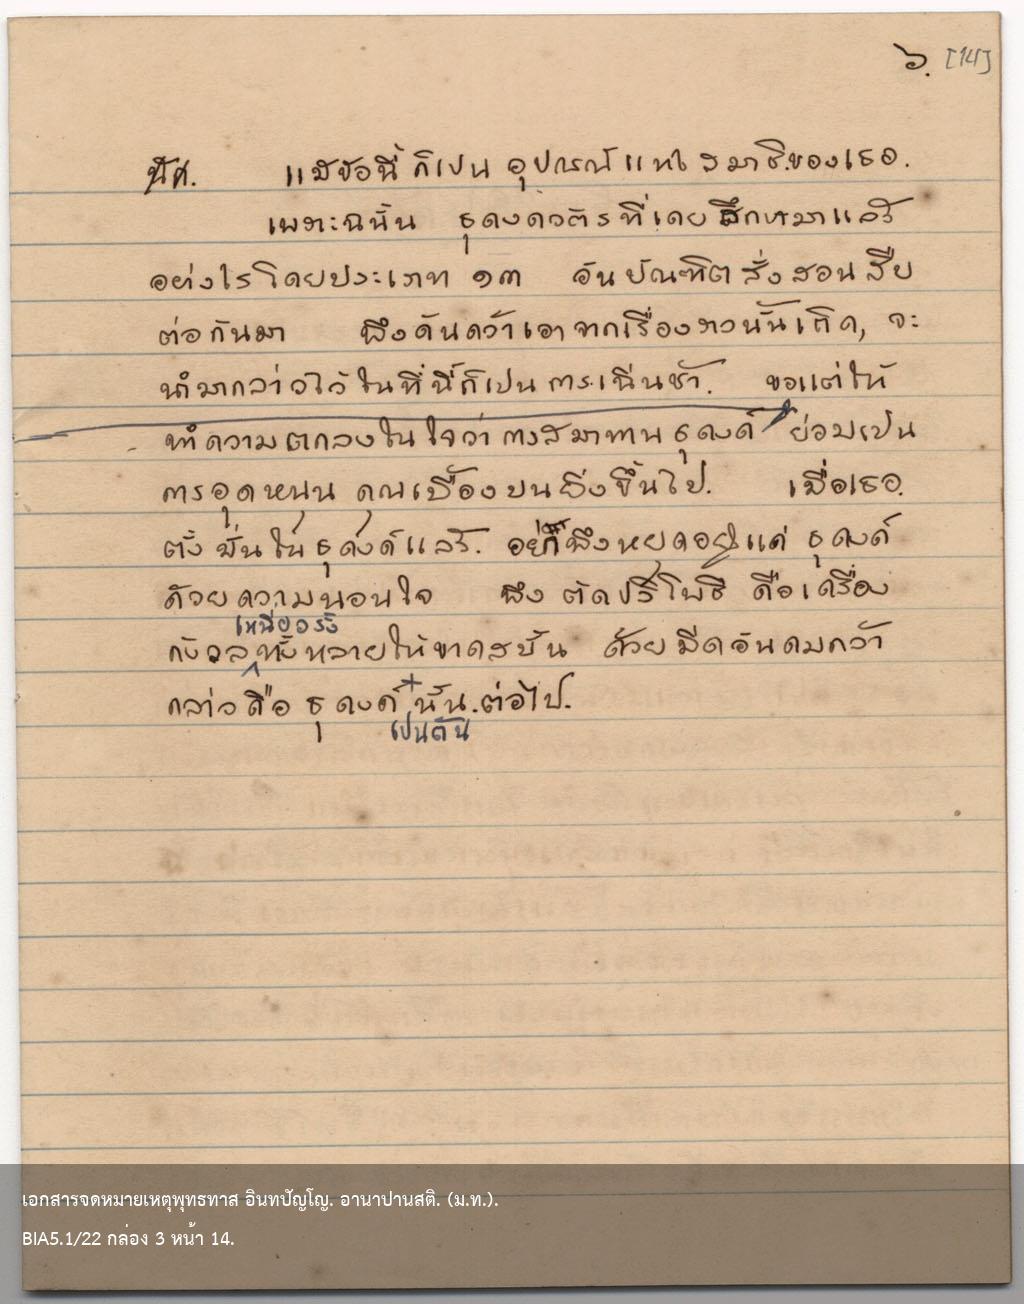 ๖. [14]
แม้ข้อนี้ ก็เปน อุปกรณ์ แห่ง สมาธิของเธอ.
เพราะฉนั้น ธุดงควัตร ที่เคย ศึกษามาแล้ว
อย่างไร โดยประเภท ๑๓ อันบัณฑิต สั่งสอน สืบ
ต่อกันมา พึงค้นคว้าเอา จากเรื่องราวนั้นเถิด, จะ
นำมากล่าวไว้ ในที่นี้ก็เปน การเนิ่นช้า. ขอแต่ให้
ทำความตกลงใน ใจว่า การสมาทาน ธุดงค์ ย่อมเปน
การอุดหนุน คุณเบื้องบนยิ่งขึ้นไป. เมื่อเธอ.
ตั้งมั่นใน ธุดงค์แล้ว. อย่าพึงหยุดอยู่แค่ ธุดงค์
ด้วยความนอนใจ พึง ตัดปริโพธิ คือเครื่อง
เหนี่ยวรั้ง
กังวลทั้งหลายให้ขาดสบั้น ด้วยมีดอันคมกว้า
กล่าวคือ ธุดงค์ นั้น.ต่อไป.
เปนต้น
เอกสารจดหมายเหตุพุทธทาส อินทปัญโญ. อานาปานสติ. (ม.ท.).
BIA5.1/22 กล่อง 3 หน้า 14.